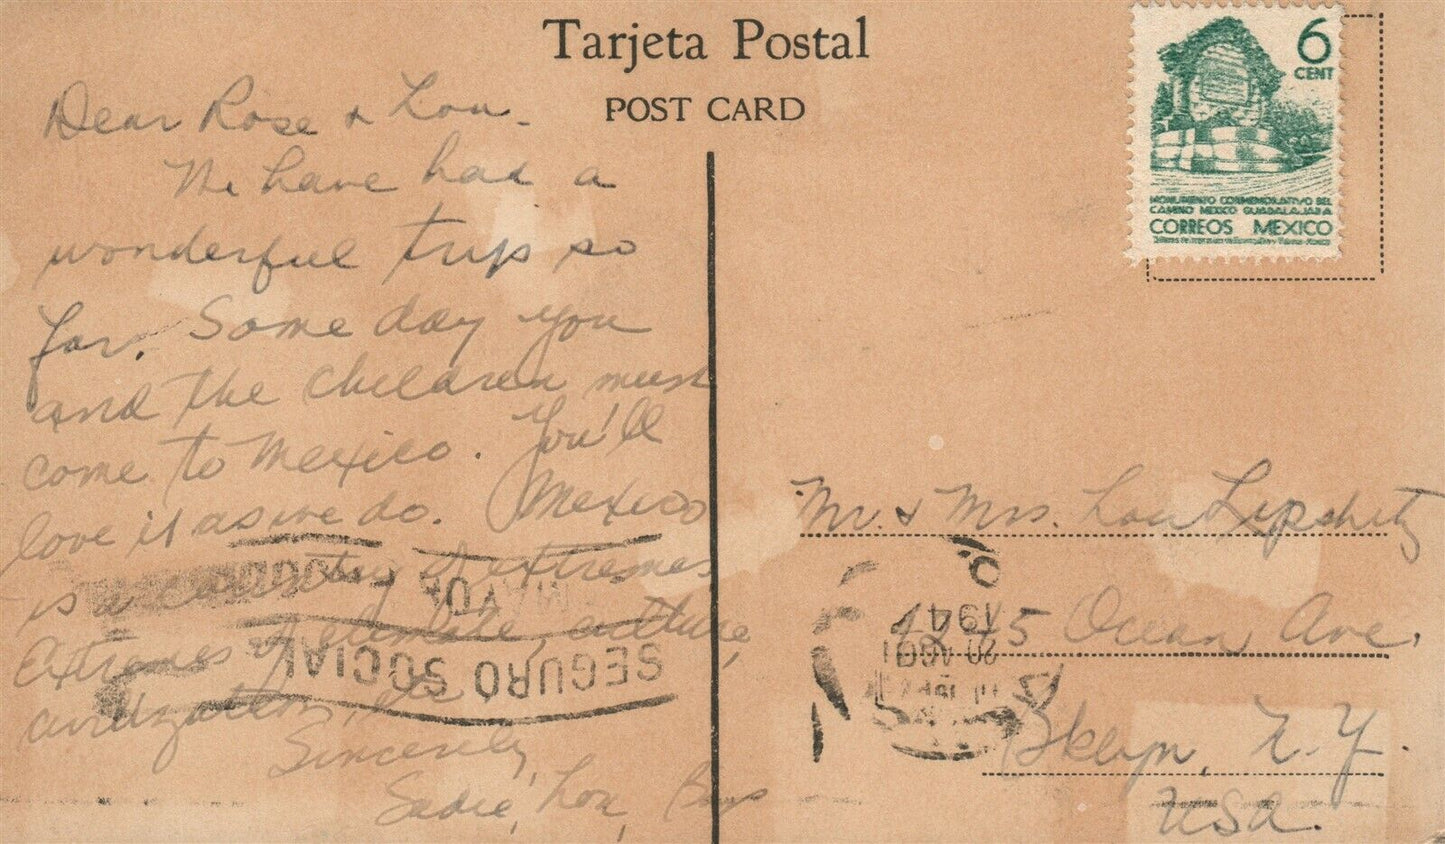 Tarjeta Postal
POST CARD
Dear Rose & Lou -
We have had a
wonderful trip so
far. Some day you
and the children must
come to Mexico. You'll
love it as we do. Mexico
is a country of extremes
Extremes of climate, culture,
civilization, etc.
Sincerely,
Sadie, Lou, Boys
6
CENT
MONUMENTO CONMEMORATIVO DEL
CAMINO MEXICO GUADALAJARA
CORREOS MEXICO
Mr. & Mrs. Lou Lipshitz
1245 Ocean Ave.
Bklyn, N.Y.
USA.
SEGURO SOCIAL
MAYOR
194
20 AGO